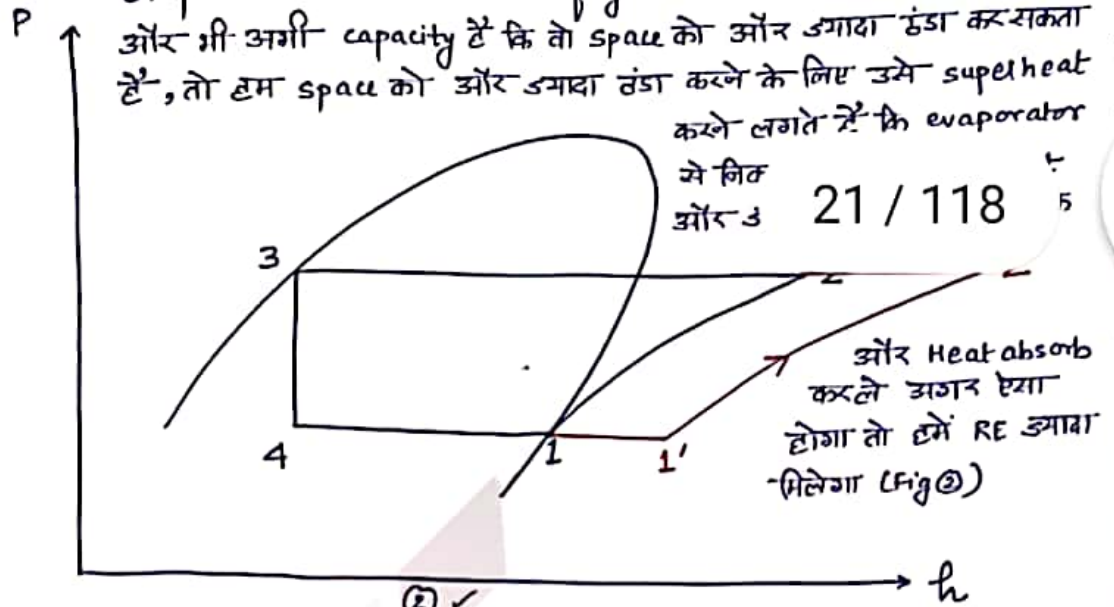 P
और भी अभी capacity है कि वो space को और ज्यादा ठंडा कर सकता
है, तो हम space को और ज्यादा ठंडा करने के लिए उसे superheat
करने लगते हैं कि evaporator
से
और
21 / 118
3
2
और Heat absorb
करले अगर ऐसा
होगा तो हमें RE ज्यादा
मिलेगा (Fig ②)
4
1
1'
h
② ✓